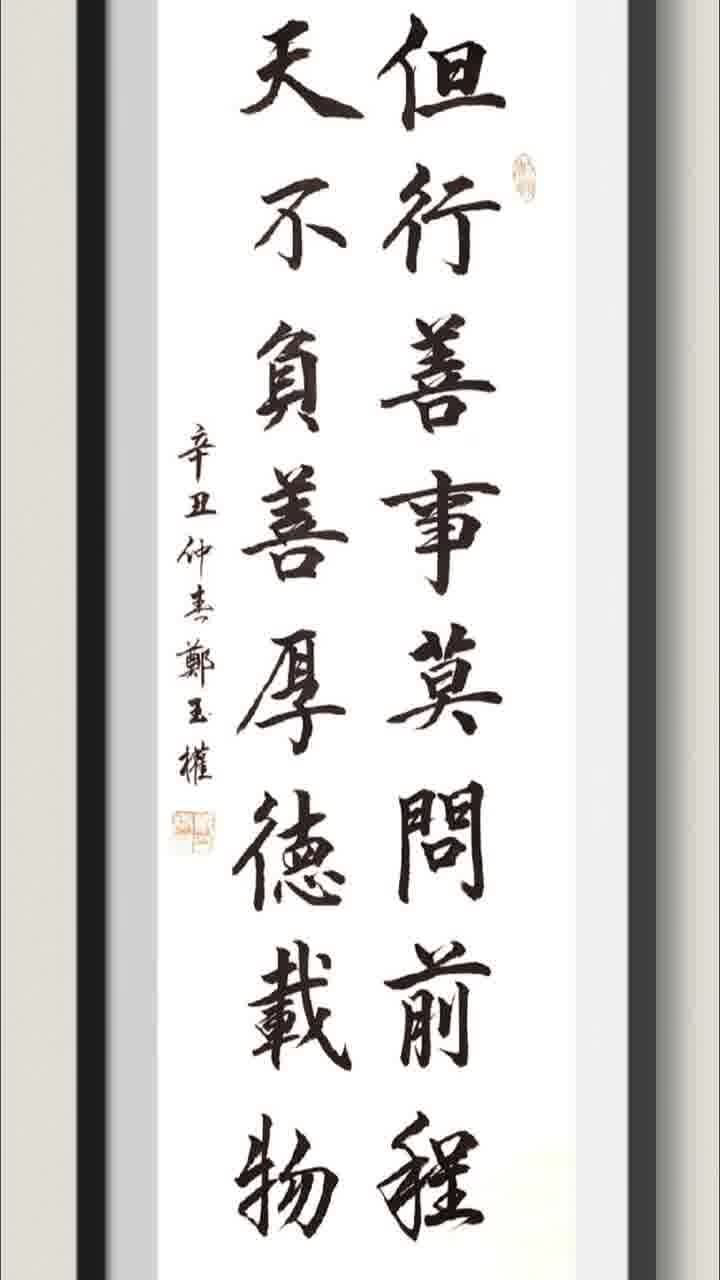 但行善事莫問前程
天不負善厚德載物
辛丑仲春鄭玉權